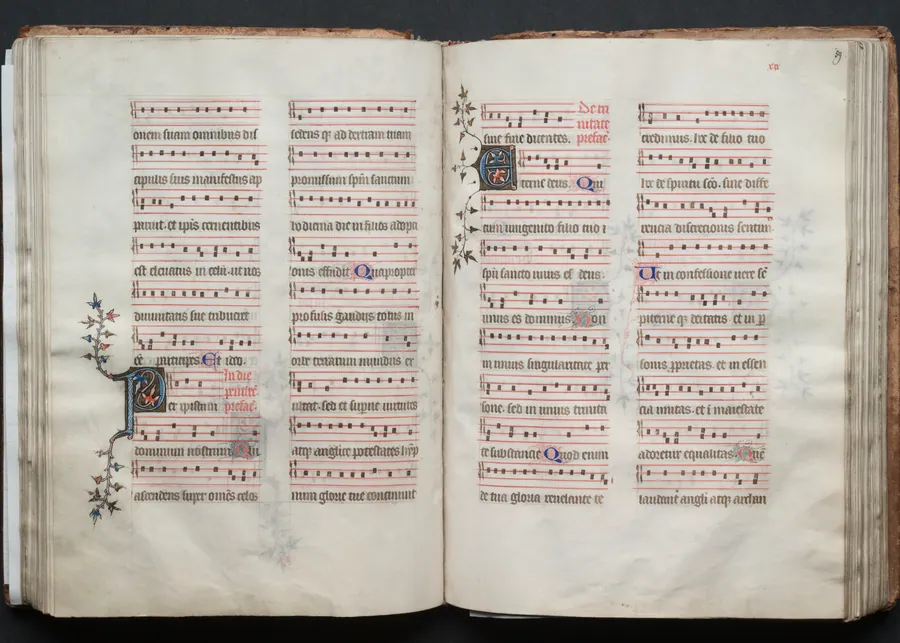 onem suam omnibus dis
cipulis suis manifestus ap
paruit. et ipis cernentibus
est eleuatus in celū. ut nos
diuinitatis sue tribueret
eē participes. Et ideo.
In die
prefac̄
er ipsum
dominum nostrum. Qui
ascendens super om̄es celos
sedens q; ad dextram tuam
promissum spm̄ sanctum
hodierna die in filios adopti
onis effudit. Quapropter
profusis gaudijs totus in
orbe terrarum mundus ex
ultat. sed et superne uirtutes
atq; anglice potestates hyp
num glorie tue concinunt
xv
59
sine fine dicentes.
De tri
nitate
prefac̄
Eterne deus. Qui
cum unigenito filio tuo et
spū sancto unus es deus.
unus es dominus. Non
in unius singularitate per
sone. sed in unius trinita
te substancie. Quod enim
de tua gloria reuelante te
credimus. hoc de filio tuo
hoc de spiritu sc̄o. sine diffe
rencia discrecionis sentim
Ut in confessione uere se
piterne q; deitatis. et in p
sonis proprietas. et in essen
cia unitas. et ī maiestate
adoretur equalitas. Quē
laudant angli atq; archan